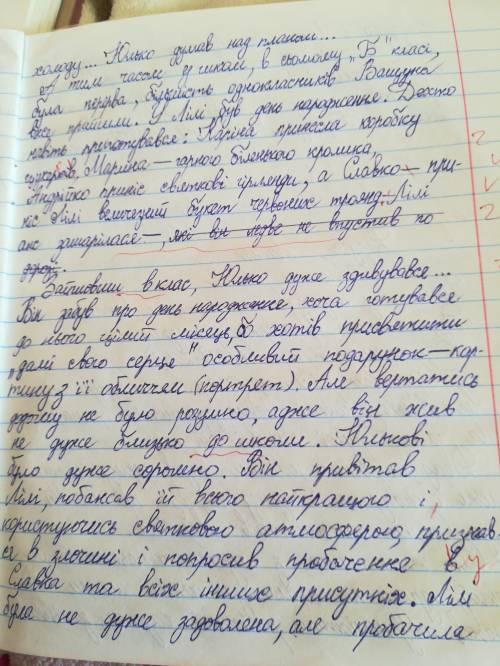 холоду... Юлько думав над планом...
А тим часом у школі, в сьомому „Б" класі,
була перерва, більшість однокласників
вже прийшли. У Лілі був день народження. Дехто
навіть приготувався: Каріна принесла коробку
цукерок, Марійка — гарного біленького кролика,
Андрійко приніс святкові гірлянди, а Славко — при-
ніс Лілі величезний букет червоних троянд. Лілі
аж зашарілася —, які він ледве не впустив по
дорозі.
Зайшовши в клас, Юлько дуже здивувався...
Він забув про день народження, хоча готувався
до нього цілий місяць, бо хотів присвятити
„дамі свого серця" особливий подарунок — кар-
тину з її обличчям (портрет). Але вертатись
додому не було розумно, адже він жив
не дуже близько до школи. Юлькові
було дуже соромно. Він привітав
Лілі, побажав їй всього найкращого і,
користуючись святковою атмосферою, признав-
ся в злочині і попросив пробачення в у
Славка та всіх інших присутніх. Лілі
була не дуже задоволена, але пробачила